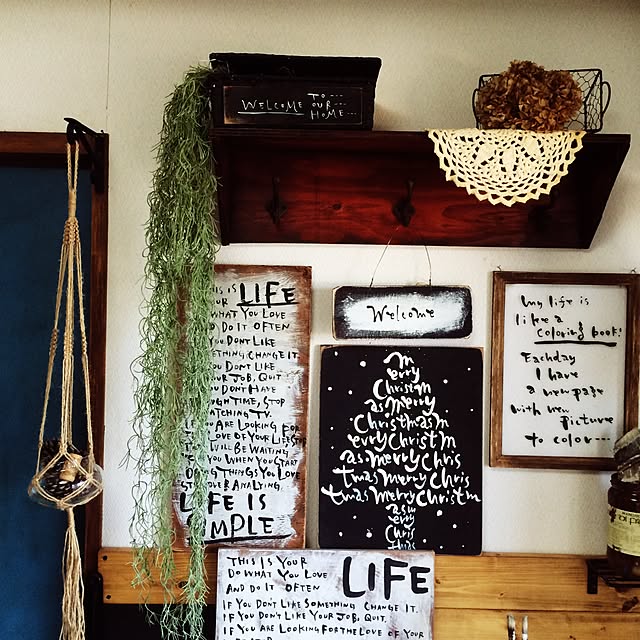 WELCOME TO---
OUR---
HOME---
THIS IS
YOUR LIFE
WHAT YOU LOVE
AND DO IT OFTEN
YOU DON'T LIKE
SOMETHING CHANGE IT.
YOU DON'T LIKE
YOUR JOB, QUIT
YOU DON'T HAVE
ENOUGH TIME, STOP
WATCHING TV.
IF YOU ARE LOOKING FOR
THE LOVE OF YOUR LIFE STOP
WILL BE WAITING
FOR YOU WHEN YOU START
DOING THINGS YOU LOVE
OVER ANALYING.
LIFE IS
SIMPLE
Welcome
m
erry
Christm
as merry
Christmas m
erry Christm
as merry Chris
tmas merry Christ
tmas merry Christm
as m
erry
Chris
tmas
my life is
like a
Coloring book!
Eachday
I have
a new page
with new
Picture
to color---
THIS IS YOUR LIFE
DO WHAT YOU LOVE
AND DO IT OFTEN
IF YOU DON'T LIKE SOMETHING CHANGE IT.
IF YOU DON'T LIKE YOUR JOB, QUIT.
IF YOU ARE LOOKING FOR THE LOVE OF YOUR